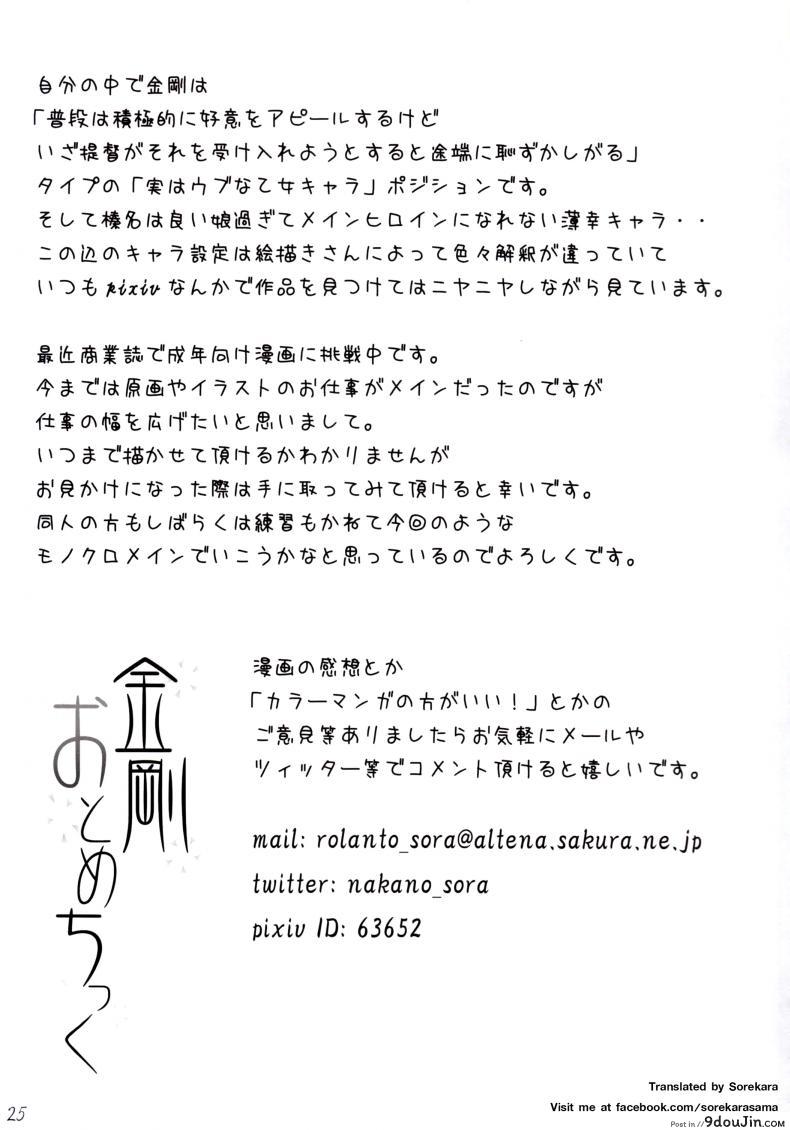 自分の中で金剛は
「普段は積極的に好意をアピールするけど
いざ提督がそれを受け入れようとすると途端に恥ずかしがる」
タイプの「実はウブな乙女キャラ」ポジションです。
そして榛名は良い娘過ぎてメインヒロインになれない薄幸キャラ・・
この辺のキャラ設定は絵描きさんによって色々解釈が違っていて
いつもpixivなんかで作品を見つけてはニヤニヤしながら見ています。
最近商業誌で成年向け漫画に挑戦中です。
今までは原画やイラストのお仕事がメインだったのですが
仕事の幅を広げたいと思いまして。
いつまで描かせて頂けるかわかりませんが
お見かけになった際は手に取ってみて頂けると幸いです。
同人の方もしばらくは練習もかねて今回のような
モノクロメインでいこうかなと思っているのでよろしくです。
金剛
おとめちっく
漫画の感想とか
「カラーマンガの方がいい！」とかの
ご意見等ありましたらお気軽にメールや
ツィッター等でコメント頂けると嬉しいです。
mail: rolanto_sora@altena.sakura.ne.jp
twitter: nakano_sora
pixiv ID: 63652
Translated by Sorekara
Visit me at facebook.com/sorekarasama
Post in // 9douJin.com
25